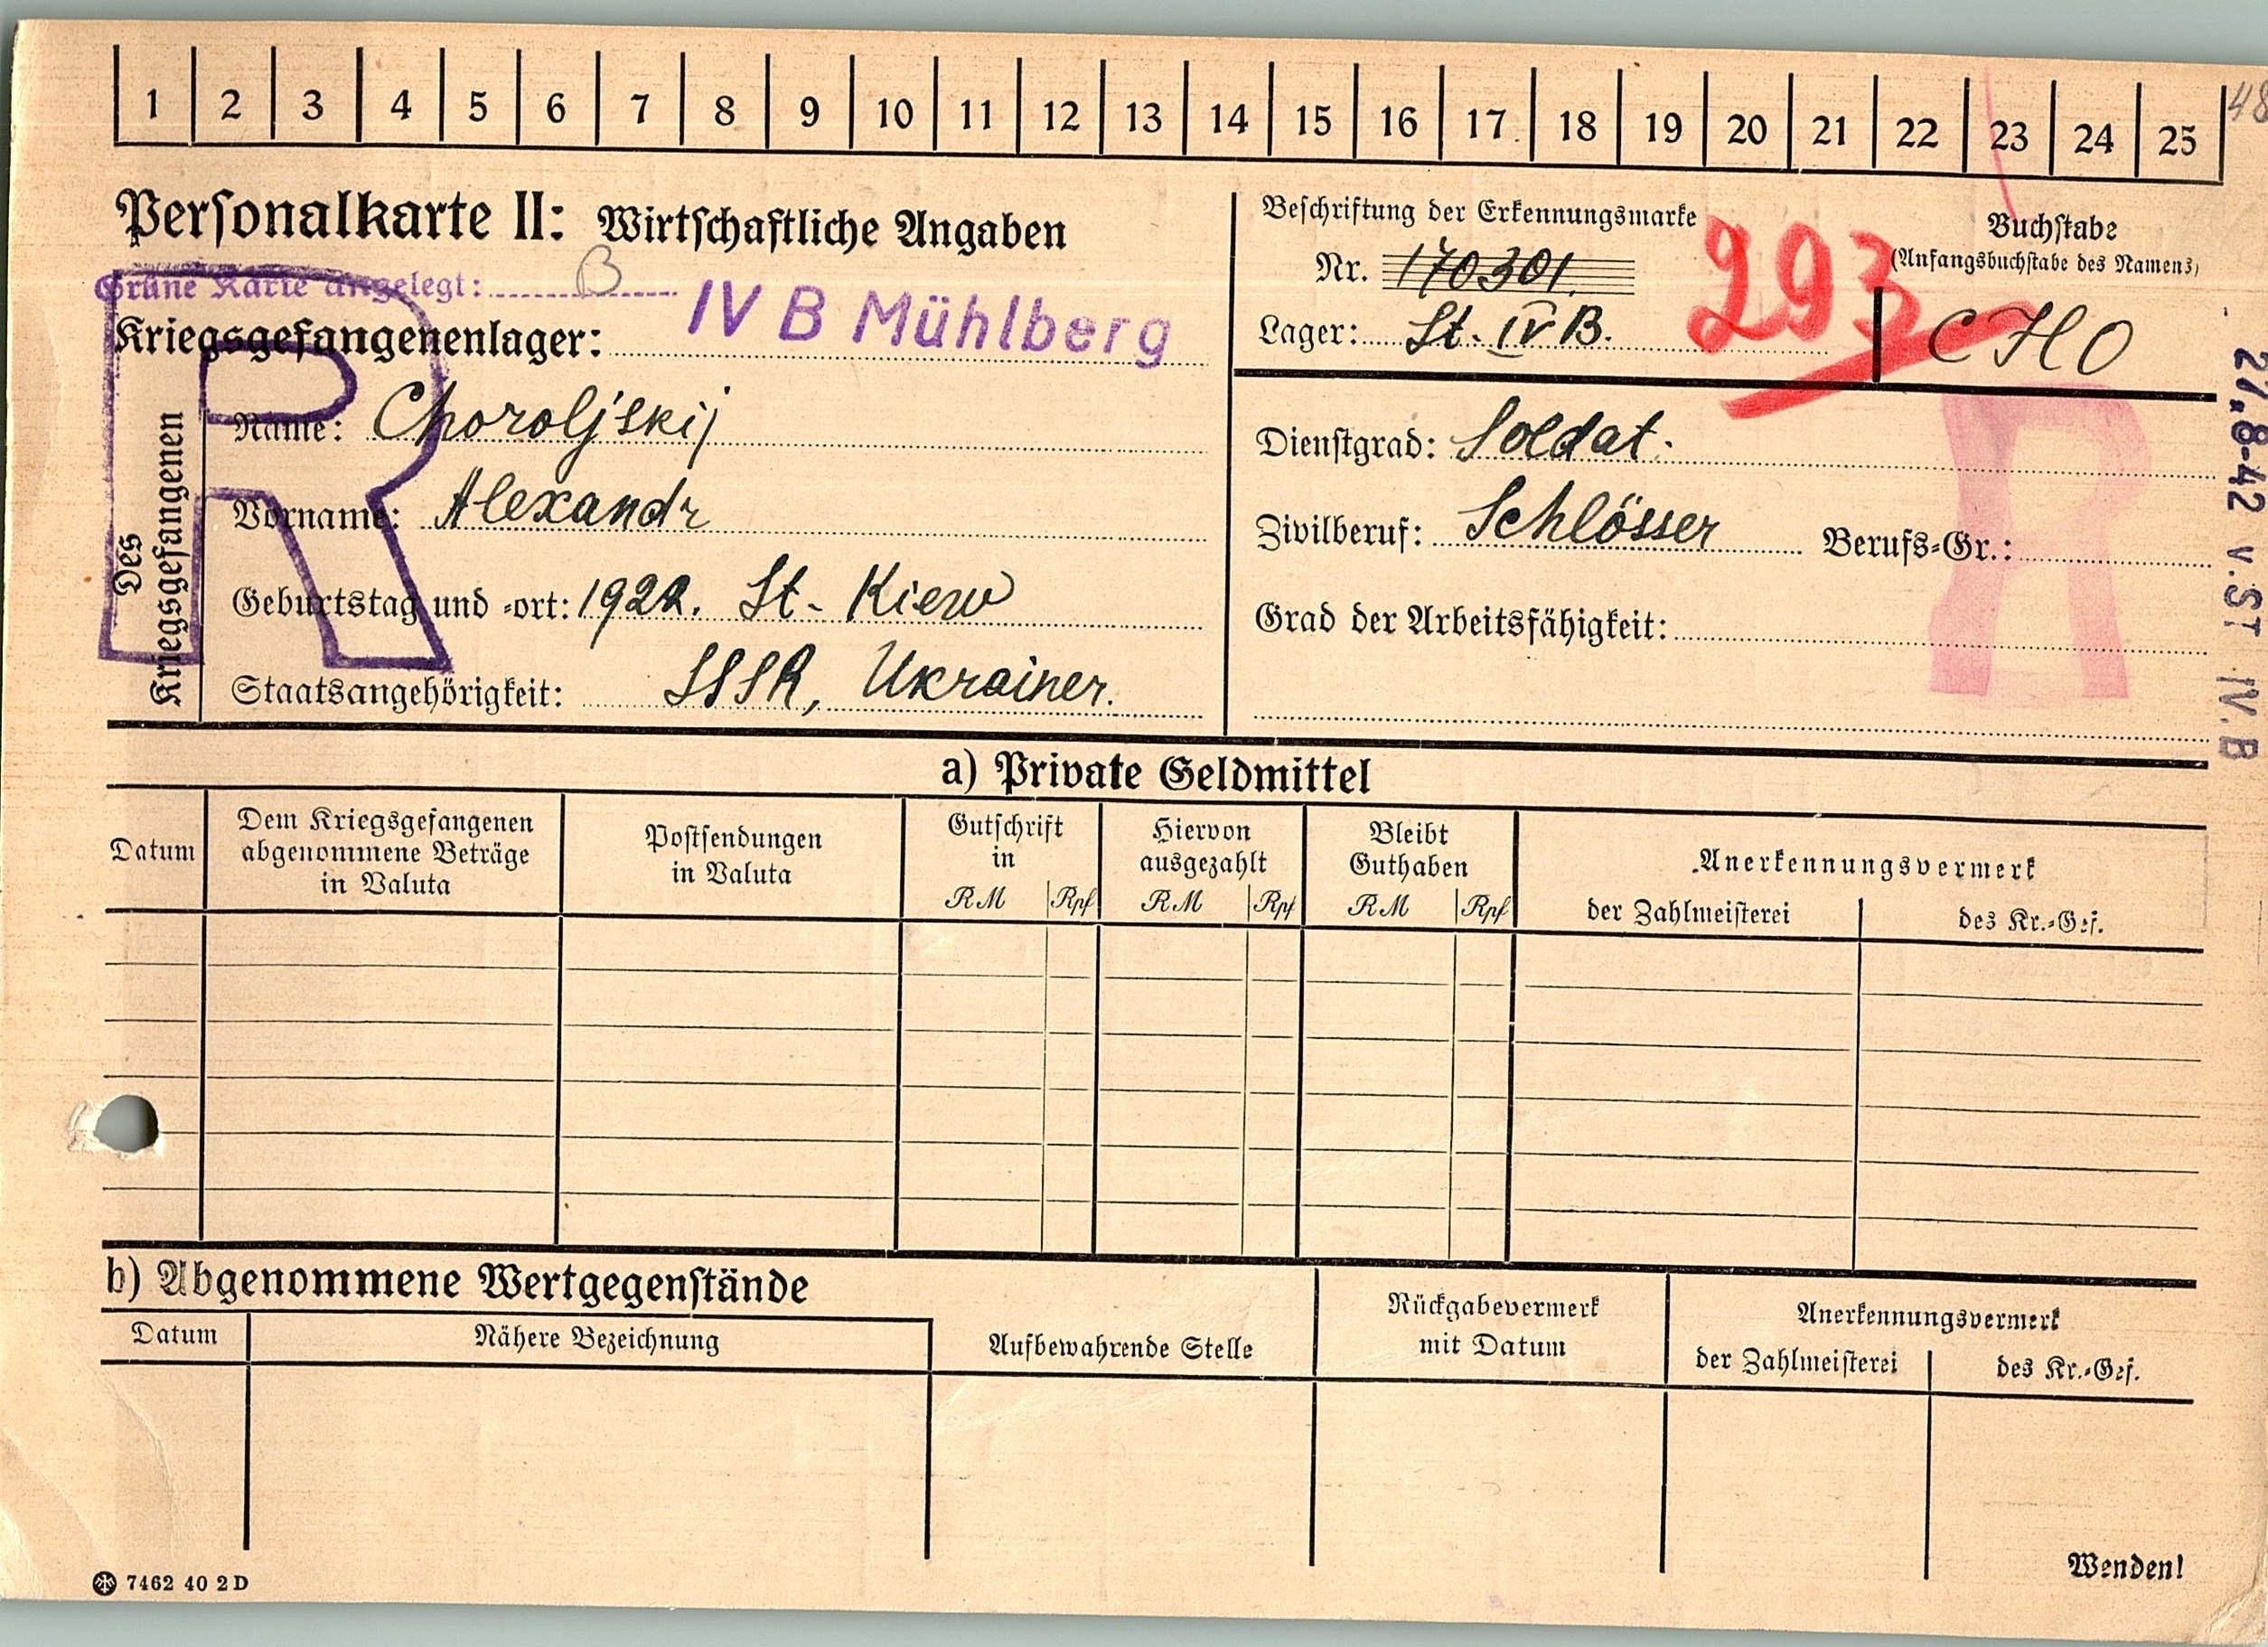 1 2 3 4 5 6 7 8 9 10 11 12 13 14 15 16 17 18 19 20 21 22 23 24 25
48
Personalkarte II: Wirtschaftliche Angaben
Grüne Karte angelegt: B
Kriegsgefangenenlager: IV B Mühlberg
Beschriftung der Erkennungsmarke
Nr. 170301.
Lager: St. IV B.
293
Buchstabe
(Anfangsbuchstabe des Namens)
CHO
R
Des
Kriegsgefangenen
Name: Choroljskij
Vorname: Alexandr
Geburtstag und -ort: 1922. St. Kiew
Staatsangehörigkeit: SSSR, Ukrainer.
Dienstgrad: Soldat.
Zivilberuf: Schlösser Berufs-Gr.:
Grad der Arbeitsfähigkeit:
R
27.8-42 v. ST IV. B
a) Private Geldmittel
Datum
Dem Kriegsgefangenen
abgenommene Beträge
in Valuta
Postsendungen
in Valuta
Gutschrift
in
RM Rpf
Hiervon
ausgezahlt
RM Rpf
Bleibt
Guthaben
RM Rpf
Anerkennungsvermerk
der Zahlmeisterei des Kr.-Gef.
b) Abgenommene Wertgegenstände
Datum
Nähere Bezeichnung
Aufbewahrende Stelle
Rückgabevermerk
mit Datum
Anerkennungsvermerk
der Zahlmeisterei des Kr.-Gef.
7462 40 2 D
Wenden!